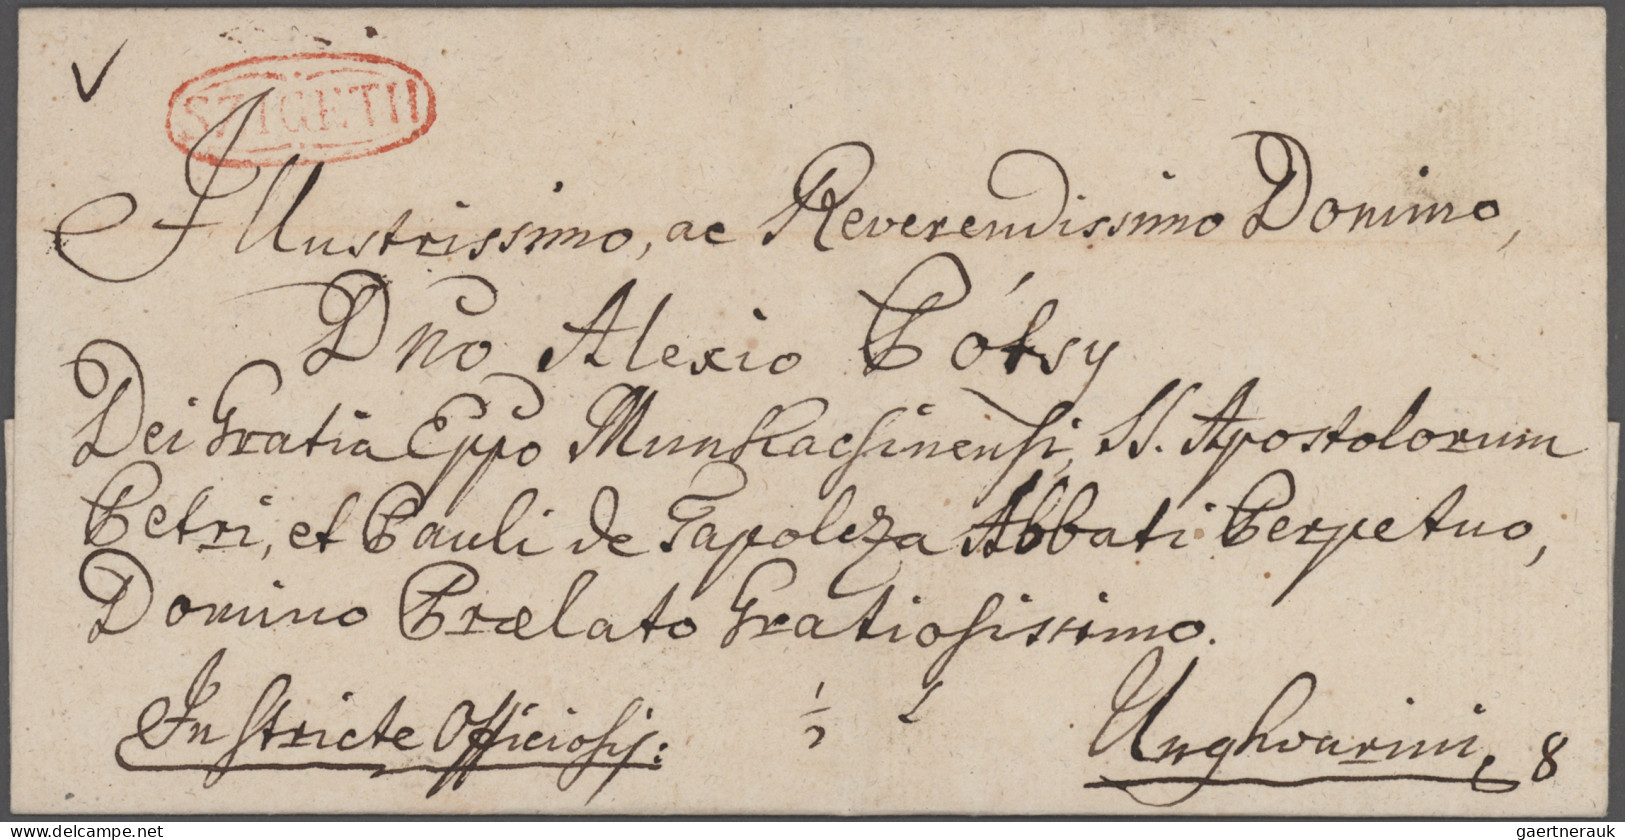 SZIGETH
Illustrissimo, ac Reverendissimo Domino,
Dno Alexio Pótsy
Dei Gratia Eppo Munkachinensi, SS. Apostolorum
Petri, et Pauli de Tapolcza Abbati Perpetuo,
Domino Prælato Gratiosissimo.
In Stricte Officiosis:
Unghvarini, 8
delcampe.net
gaertnerauk